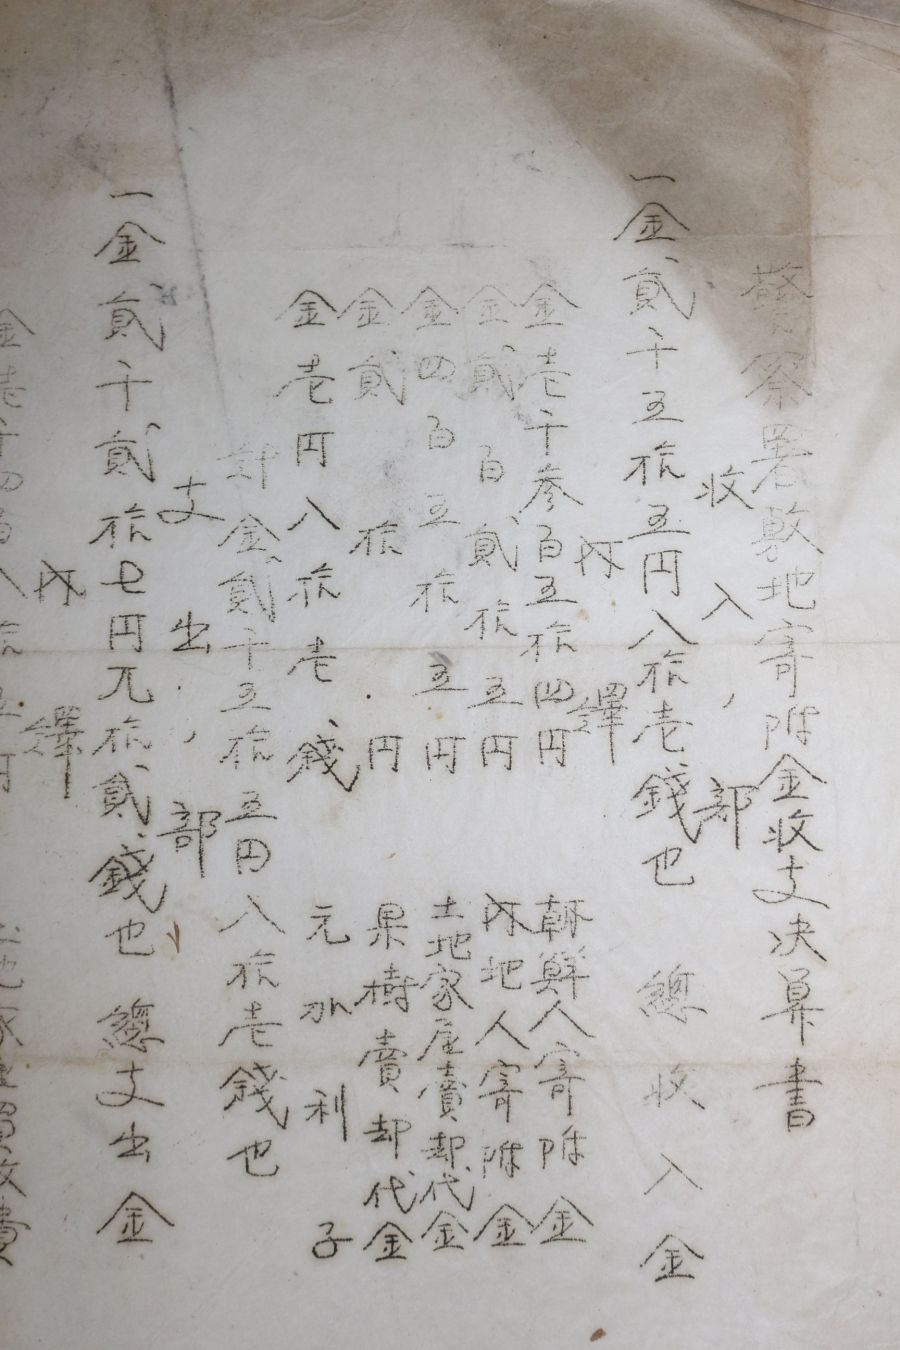 警察署敷地寄附金收支決算書
收入ノ部
一金貳千五拾五円八拾壱錢也 總收入金
内譯
金壱千参百五拾四円 朝鮮人寄附金
金貳百貳拾五円 内地人寄附金
金四百五拾五円 土地家屋賣却代金
金貳拾円 果樹賣却代金
金壱円八拾壱錢 元加利子
計金貳千五拾五円八拾壱錢也
支出ノ部
一金貳千貳拾七円九拾貳錢也 總支出金
内譯
金壱千四百八拾五円 土地家屋買收費